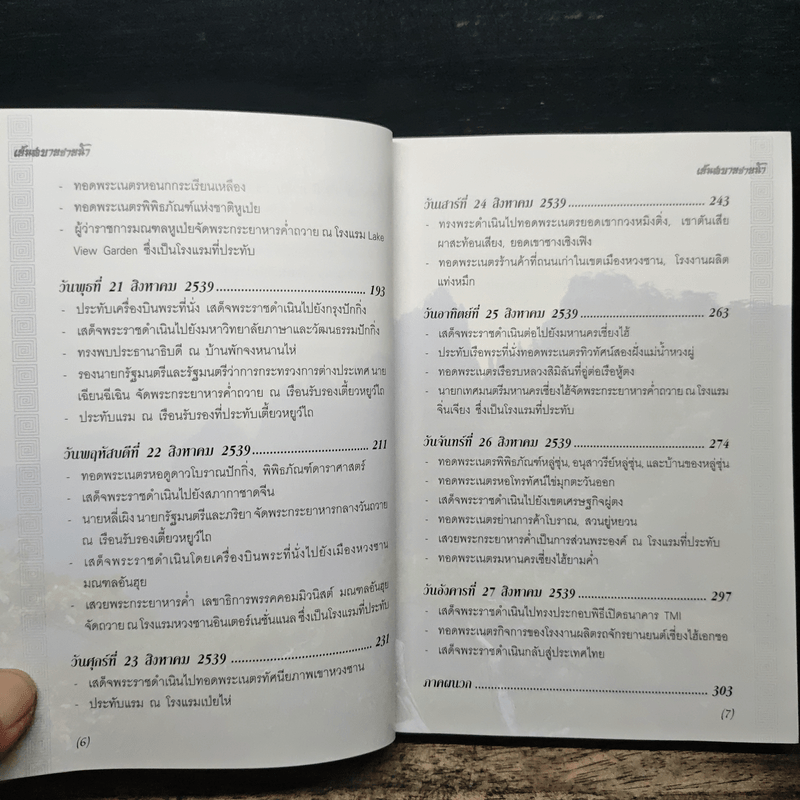 เย็นสบายชายน้ำ
- ทอดพระเนตรหอนกกระเรียนเหลือง
- ทอดพระเนตรพิพิธภัณฑ์แห่งชาติหูเป่ย
- ผู้ว่าราชการมณฑลหูเป่ยจัดพระกระยาหารค่ำถวาย ณ โรงแรม Lake
View Garden ซึ่งเป็นโรงแรมที่ประทับ
วันพุธที่ 21 สิงหาคม 2539 193
- ประทับเครื่องบินพระที่นั่ง เสด็จพระราชดำเนินไปยังกรุงปักกิ่ง
- เสด็จพระราชดำเนินไปยังมหาวิทยาลัยภาษาและวัฒนธรรมปักกิ่ง
- ทรงพบประธานาธิบดี ณ บ้านพักจงหนานไห่
- รองนายกรัฐมนตรีและรัฐมนตรีว่าการกระทรวงการต่างประเทศ นาย
เฉียนฉีเฉิน จัดพระกระยาหารค่ำถวาย ณ เรือนรับรองเตี้ยวหยูว์ไถ
- ประทับแรม ณ เรือนรับรองที่ประทับเตี้ยวหยูว์ไถ
วันพฤหัสบดีที่ 22 สิงหาคม 2539 211
- ทอดพระเนตรหอดูดาวโบราณปักกิ่ง, พิพิธภัณฑ์ดาราศาสตร์
- เสด็จพระราชดำเนินไปยังสภากาชาดจีน
- นายหลี่เผิง นายกรัฐมนตรีและภริยา จัดพระกระยาหารกลางวันถวาย
ณ เรือนรับรองเตี้ยวหยูว์ไถ
- เสด็จพระราชดำเนินโดยเครื่องบินพระที่นั่งไปยังเมืองหวงซาน
มณฑลอันฮุย
- เสวยพระกระยาหารค่ำ เลขาธิการพรรคคอมมิวนิสต์ มณฑลอันฮุย
จัดถวาย ณ โรงแรมหวงซานอินเตอร์เนชั่นแนล ซึ่งเป็นโรงแรมที่ประทับ
วันศุกร์ที่ 23 สิงหาคม 2539 231
- เสด็จพระราชดำเนินไปทอดพระเนตรทัศนียภาพเขาหวงซาน
- ประทับแรม ณ โรงแรมเป่ยไห่
(6)
เย็นสบายชายน้ำ
วันเสาร์ที่ 24 สิงหาคม 2539 243
- ทรงพระดำเนินไปทอดพระเนตรยอดเขากวงหมิงติ่ง, เขาตันเสีย
ผาสะท้อนเสียง, ยอดเขาซางเชิงเฟิง
- ทอดพระเนตรร้านค้าที่ถนนเก่าในเขตเมืองหวงซาน, โรงงานผลิต
แท่งหมึก
วันอาทิตย์ที่ 25 สิงหาคม 2539 263
- เสด็จพระราชดำเนินต่อไปยังมหานครเซี่ยงไฮ้
- ประทับเรือพระที่นั่งทอดพระเนตรทิวทัศน์สองฝั่งแม่น้ำหวงผู่
- ทอดพระเนตรเรือรบหลวงสิมิลันที่อู่ต่อเรือหู้ตง
- นายกเทศมนตรีมหานครเซี่ยงไฮ้จัดพระกระยาหารค่ำถวาย ณ โรงแรม
จิ่นเจียง ซึ่งเป็นโรงแรมที่ประทับ
วันจันทร์ที่ 26 สิงหาคม 2539 274
- ทอดพระเนตรพิพิธภัณฑ์หลู่ซุ่น, อนุสาวรีย์หลู่ซุ่น, และบ้านของหลู่ซุ่น
- ทอดพระเนตรหอโทรทัศน์ไข่มุกตะวันออก
- เสด็จพระราชดำเนินไปยังเขตเศรษฐกิจผู่ตง
- ทอดพระเนตรย่านการค้าโบราณ, สวนยู่หยวน
- เสวยพระกระยาหารค่ำเป็นการส่วนพระองค์ ณ โรงแรมที่ประทับ
- ทอดพระเนตรมหานครเซี่ยงไฮ้ยามค่ำ
วันอังคารที่ 27 สิงหาคม 2539 297
- เสด็จพระราชดำเนินไปทรงประกอบพิธีเปิดธนาคาร TMI
- ทอดพระเนตรกิจการของโรงงานผลิตรถจักรยานยนต์เซี่ยงไฮ้เอกชอ
- เสด็จพระราชดำเนินกลับสู่ประเทศไทย
ภาคผนวก 303
(7)